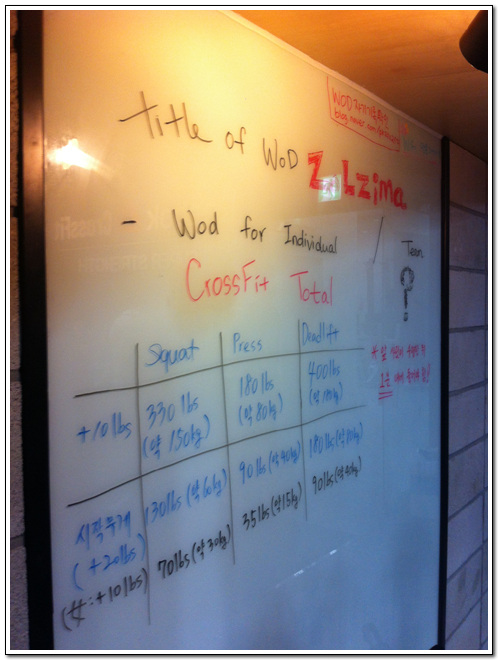 WOD
blog.naver.com/
Title of WOD
Z Lzima
- Wod for Individual / Team
?
CrossFit Total
Squat Press Deadlift
+10lbs 330 lbs 180 lbs 400lbs
(약 150kg) (약 80kg) (약 180kg)
시작무게 130lbs (약 60kg) 90lbs (약 40kg) 180lbs (약 80kg)
(+20lbs)
(女:+10lbs) 70lbs (약 30kg) 35lbs (약 15kg) 90lbs (약 40kg)